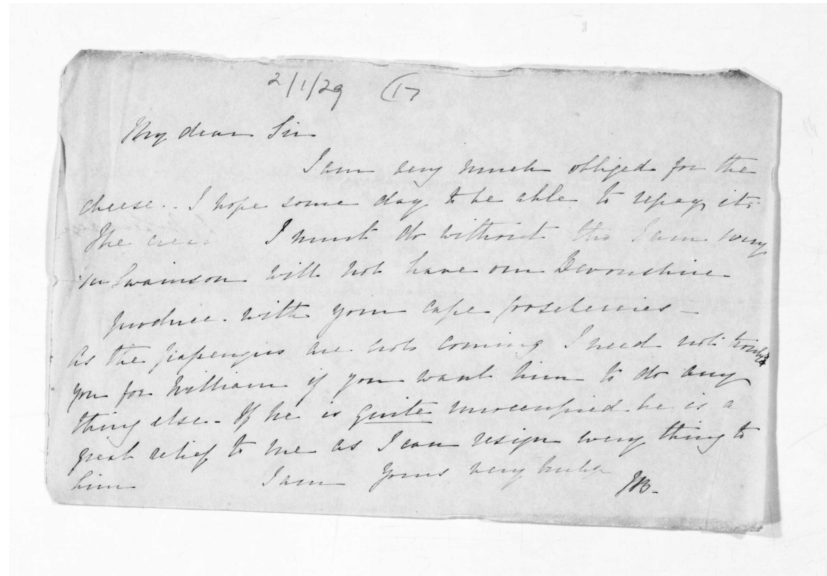 2/1/29 (17
My dear Sir
I am very much obliged for the
cheese.. I hope some day to be able to repay it.
The I must do without tho I am sorry
Mr Swainson will not have our Devonshire
produce with your cape gooseberries -
As the are not coming I need not trouble
you for William if you want him to do any
thing else - If he is quite unoccupied he is a
great relief to me as I can resign every thing to
him I am yours very truly